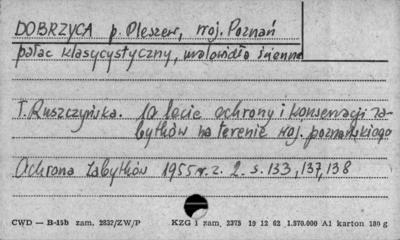 DOBRZYCA p. Pleszew, woj. Poznań
pałac klasycystyczny, malowidła ścienne
T. Ruszczyńska. 10 lecie ochrony i konserwacji za-
bytków na terenie woj. poznańskiego
Ochrona Zabytków 1955 r. z. 2. s. 133, 137, 138
CWD — B-15b zam. 2832/ZW/P KZG 1 zam. 2375 19 12 62 1.570.000 A1 karton 180 g